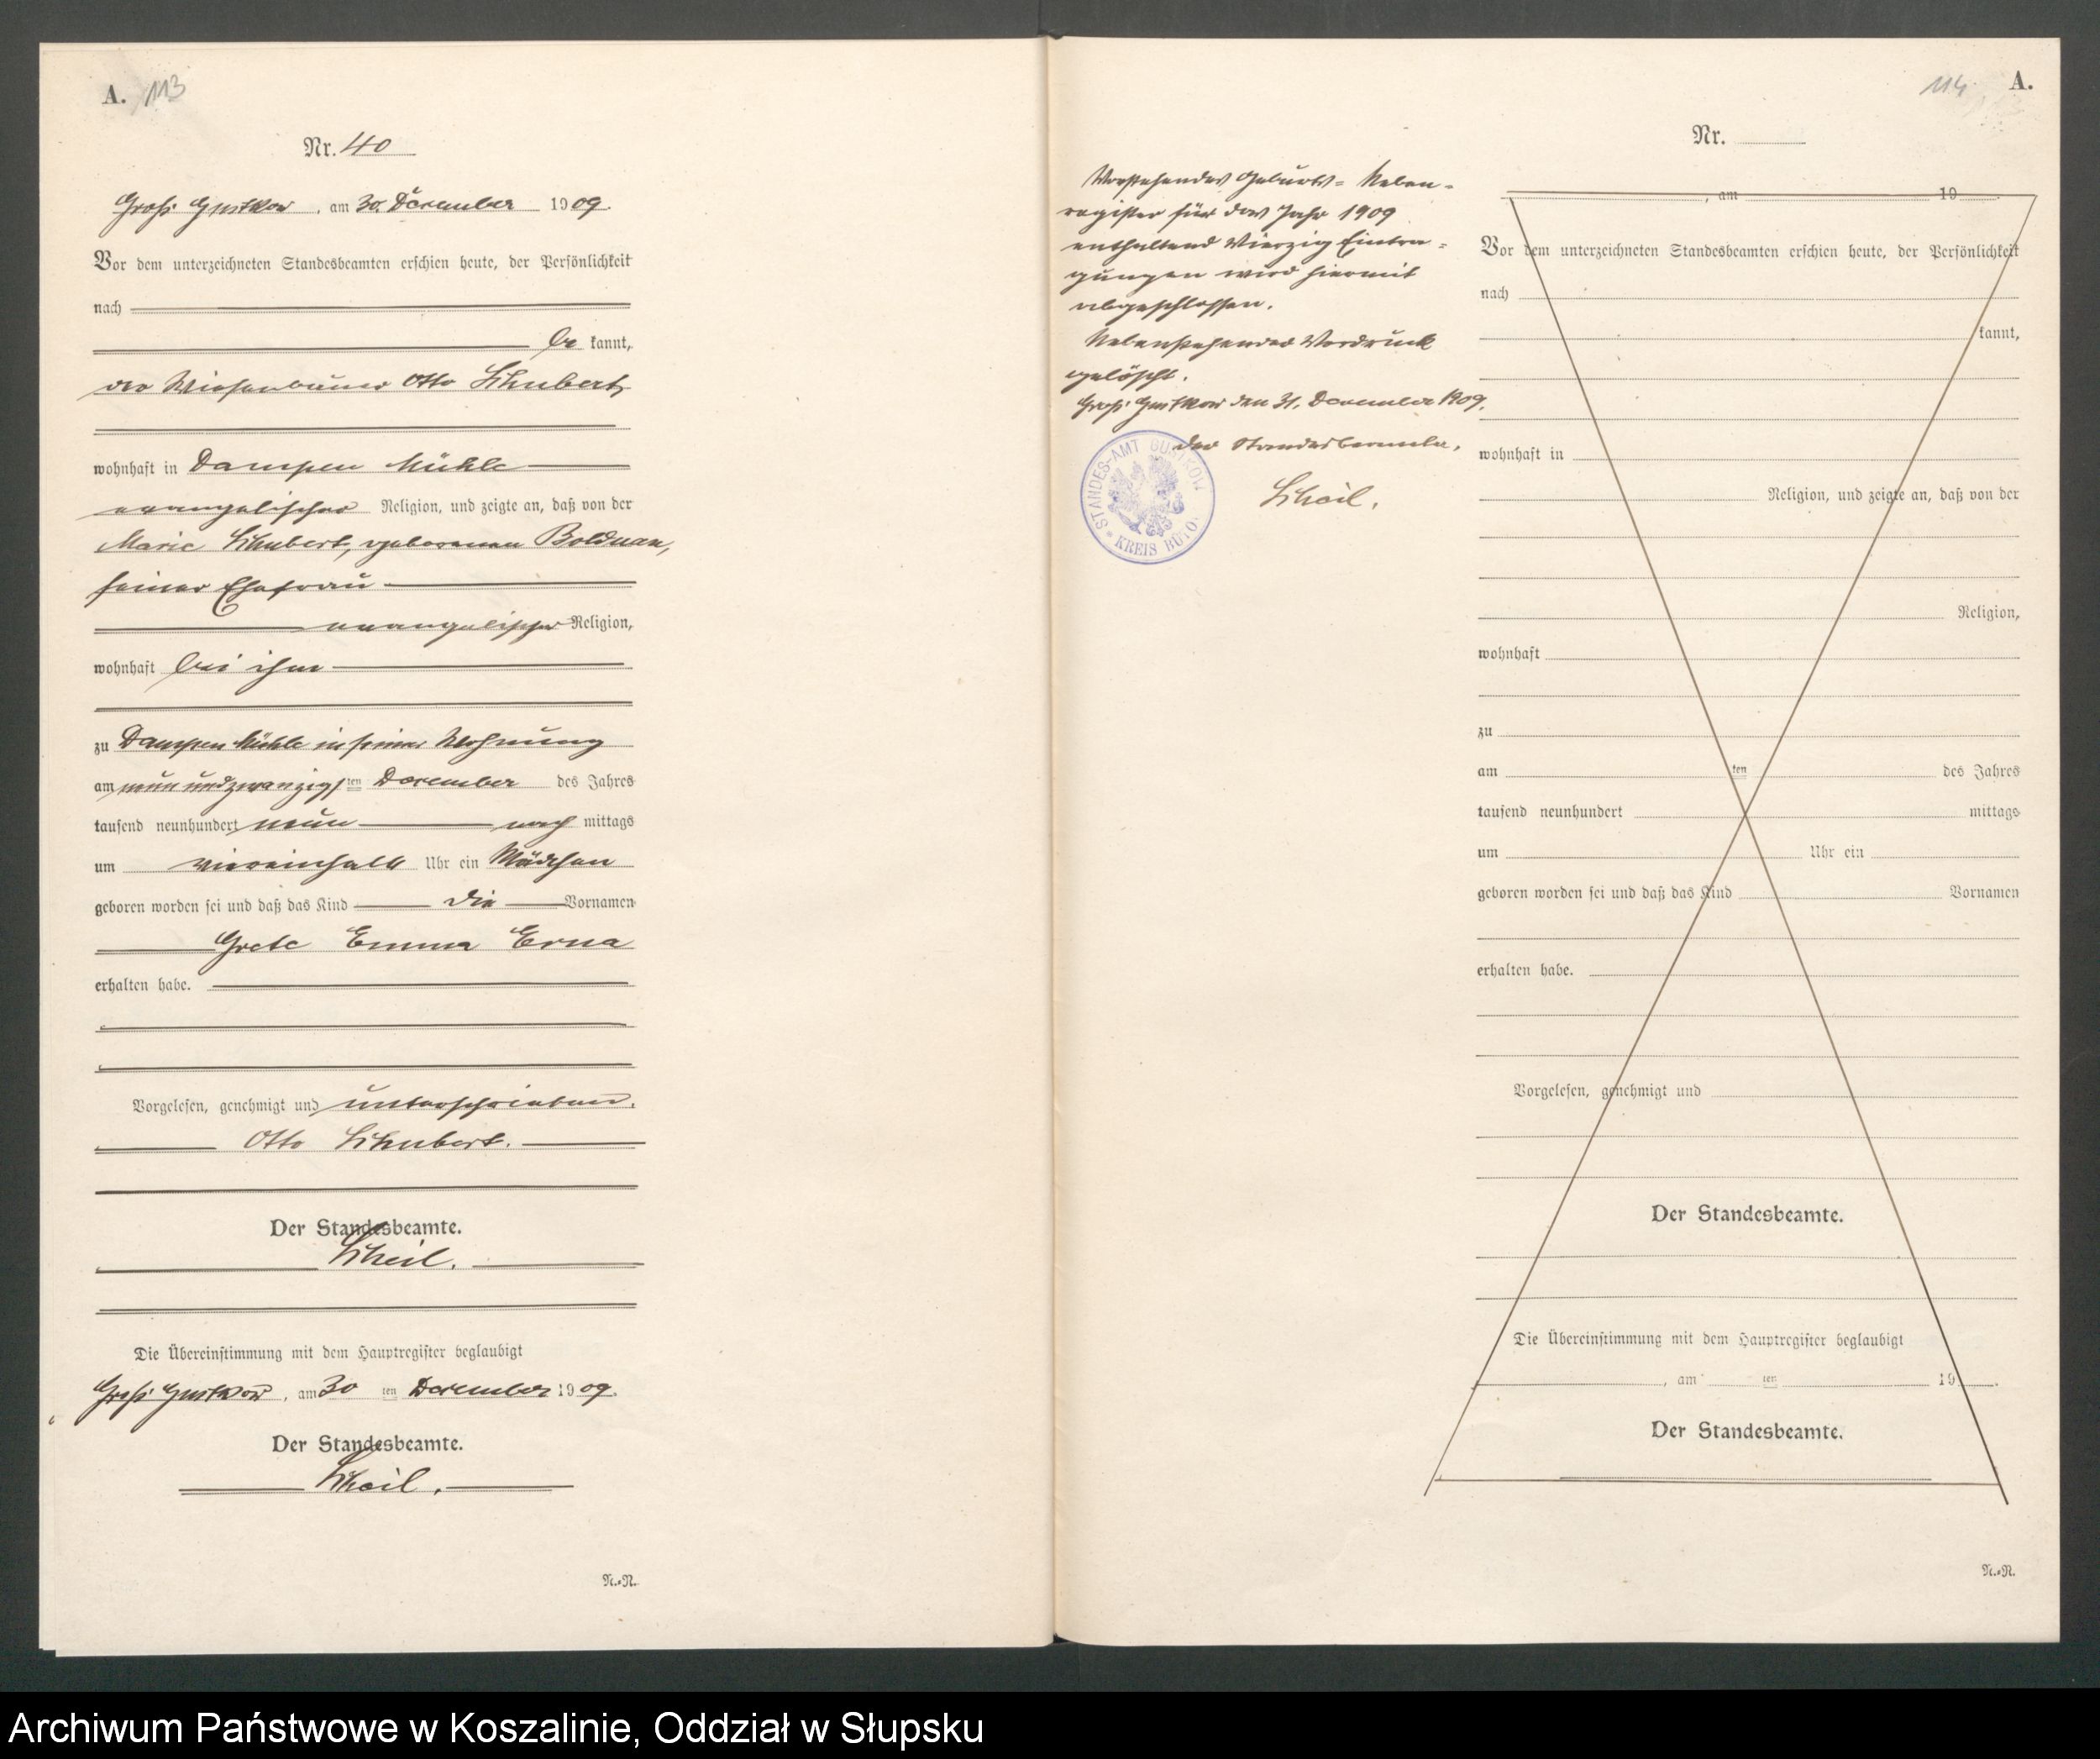 A. 113
Nr. 40
Groß Gustkow, am 30. Dezember 1909.
Vor dem unterzeichneten Standesbeamten erschien heute, der Persönlichkeit
nach
be kannt,
der Wiesenbauer Otto Schubert,
wohnhaft in Dampen Mühle
evangelischer Religion, und zeigte an, daß von der
Marie Schubert, geborenen Bolduan,
seiner Ehefrau
evangelischer Religion,
wohnhaft bei ihm
zu Dampen Mühle in seiner Wohnung
am neun und zwanzigsten Dezember des Jahres
tausend neunhundert neun nach mittags
um viereinhalb Uhr ein Mädchen
geboren worden sei und daß das Kind die Vornamen
Grete Emma Erna
erhalten habe.
Vorgelesen, genehmigt und unterschrieben.
Otto Schubert.
Der Standesbeamte.
Scheil.
Die Übereinstimmung mit dem Hauptregister beglaubigt
Groß Gustkow, am 30 ten Dezember 1909.
Der Standesbeamte.
Scheil.
N.=R.
Vorstehendes Geburts= Neben=
register für das Jahr 1909
enthaltend Vierzig Eintra=
gungen wird hiermit
abgeschlossen.
Nebenstehender Vordruck
gelöscht.
Groß Gustkow den 31. Dezember 1909.
Der Standesbeamte.
Scheil.
STANDES-AMT GUSTKOW
KREIS BÜTO
114 A.
Nr.
, am 19
Vor dem unterzeichneten Standesbeamten erschien heute, der Persönlichkeit
nach
kannt,
wohnhaft in
Religion, und zeigte an, daß von der
Religion,
wohnhaft
zu
am ten des Jahres
tausend neunhundert mittags
um Uhr ein
geboren worden sei und daß das Kind Vornamen
erhalten habe.
Vorgelesen, genehmigt und
Der Standesbeamte.
Die Übereinstimmung mit dem Hauptregister beglaubigt
, am ten 19
Der Standesbeamte.
N.=R.
Archiwum Państwowe w Koszalinie, Oddział w Słupsku